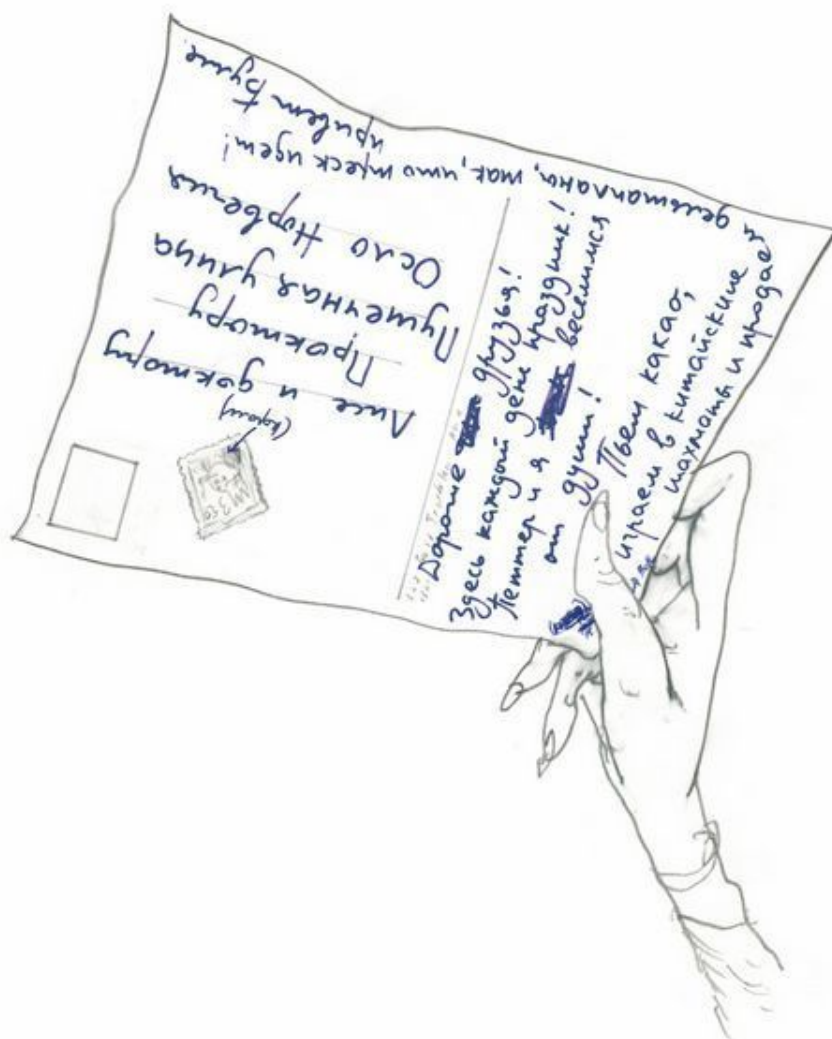 Дорогие друзья!
Здесь каждый день праздник!
Петтер и я веселимся
от души!
Пьем какао,
играем в китайские
шахматы и продаем
дельтапланы, так, что треск идет!
привет Булле.
(король)
Лисе и доктору
Проктору
Пушечная улица
Осло Норвегия